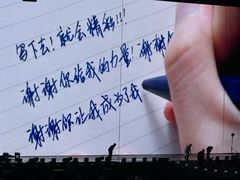 写下去!就会精彩!!!
谢谢你给我的力量!谢谢
谢谢你让我成为了我